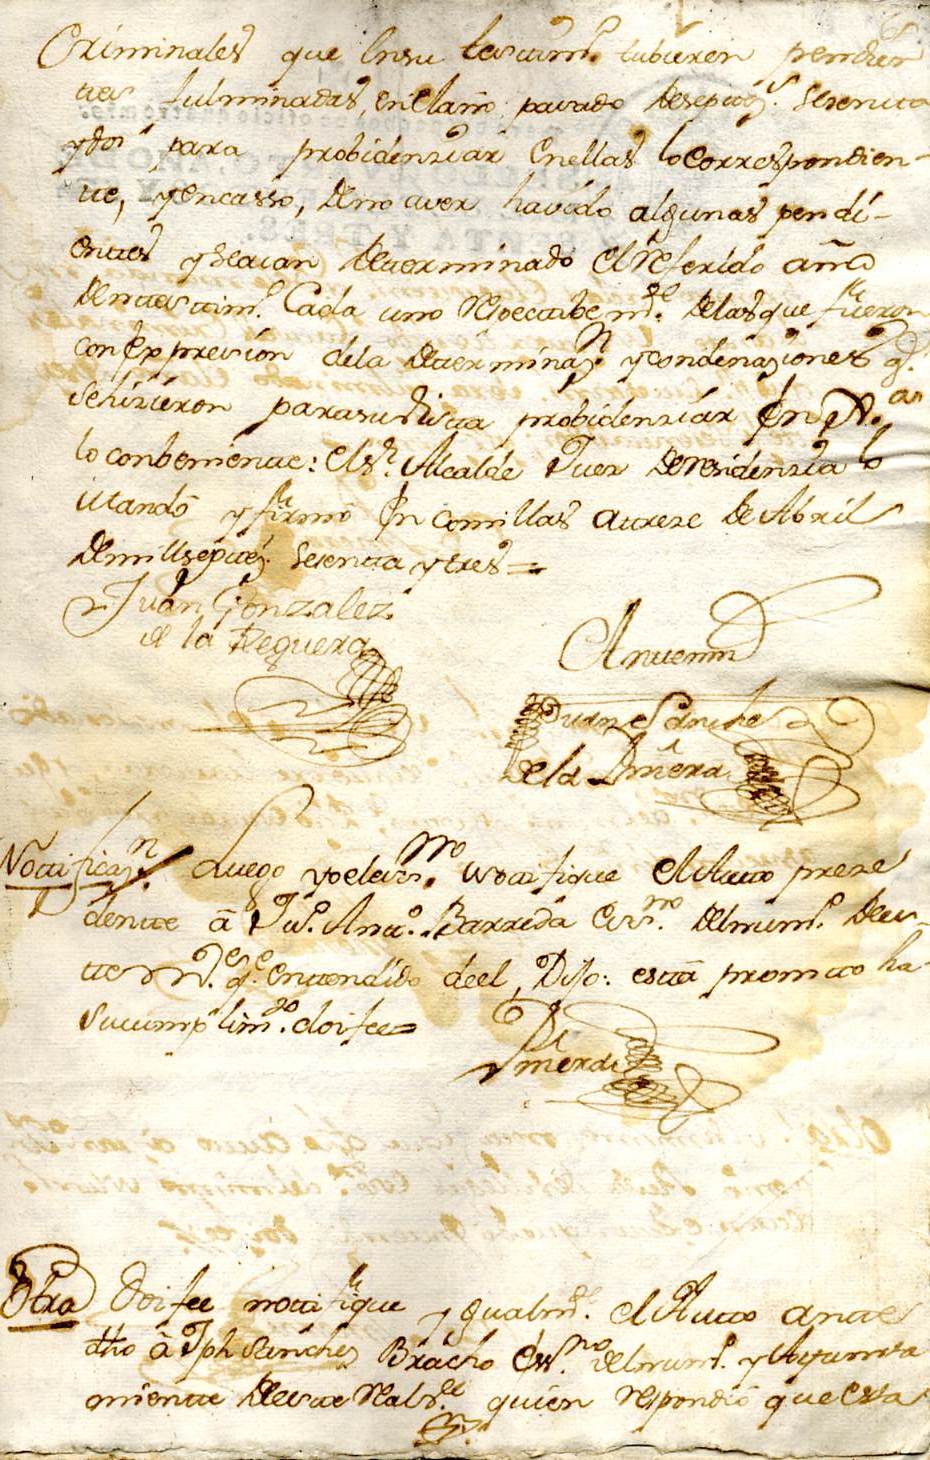 Criminales que en su testim.o tubieren pendien
tes fulminadas, en el año pasado de septez.s sesenta
y dos para probidenziar en ellas lo correspondien-
te, y encasso, de no aver havido algunas pendi-
entes y se aian determinado el referido año
de testim.o Cada uno respectibem.te de las que fueron
con expresión de la determinaz.n y condenaziones q.e
se hizieron para su vista probidenziar en R.an
lo conbeniente: el s.r Alcalde Juez de residenzia lo
mandó y firmó En Comillas a treze de Abril
de mill septez.s sesenta y tres =
Juan Gonzalez
de la Reguera
Antemi
Juan Sanchez
de la Ymera
Notificaz.n Luego yo el es.no notifique el Auto preze
dente â Ju.o Ant.o Barreda Ess.no del num.o de es-
te R.l q.e entendido de el, Dijo: está pronto ha
su cumplim.to doi fee =
Ymera
Otra Doi fee notifique ygualm.te el Auto ante
dho â Jph Sánchez Bracho Ess.no del num.o y Ayunta
miento de este Real quien respondió que esta